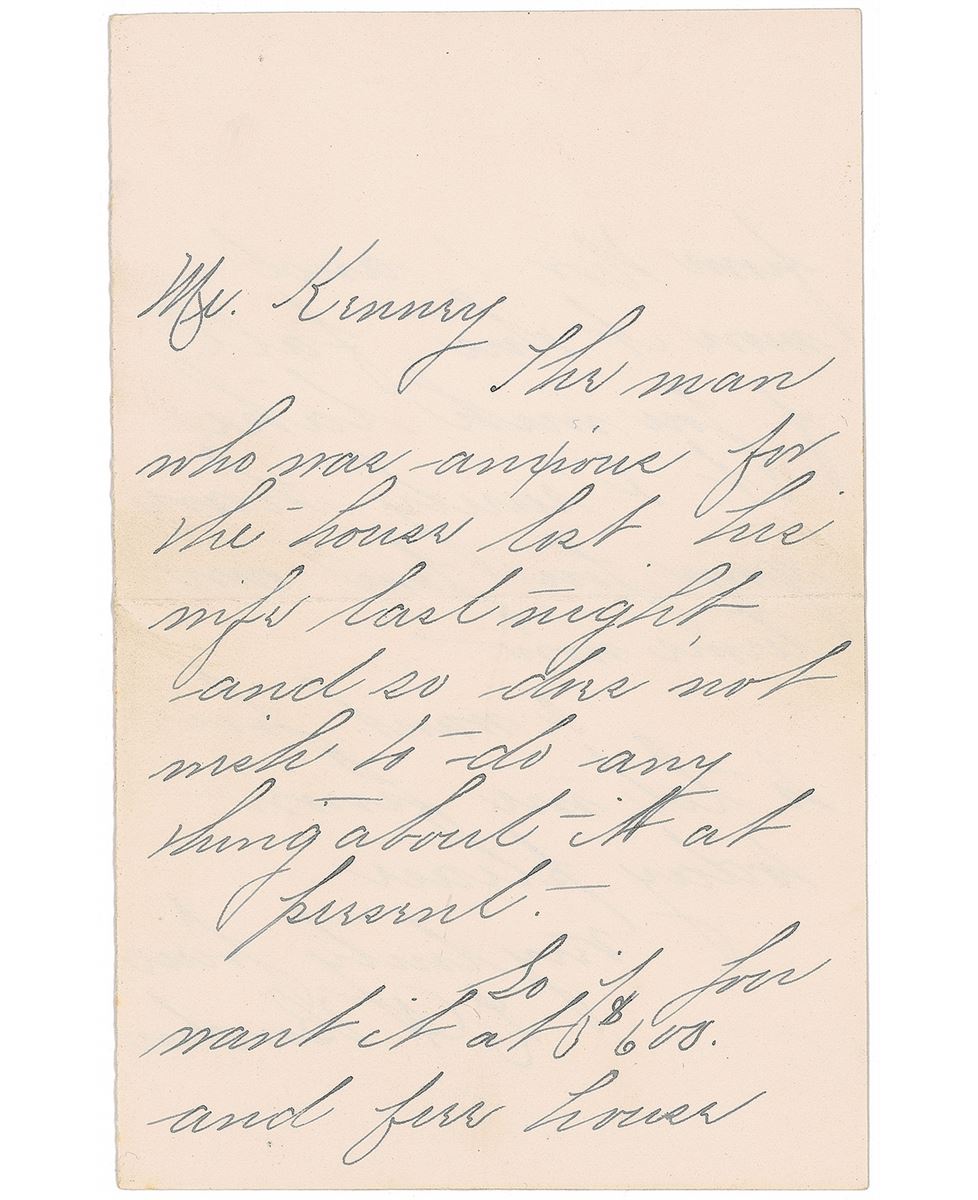 Mr. Kenney
The man
who was anxious for
the house lost his
wife last night,
and so does not
wish to do any
thing about it at
present.
So if you
want it at $600.
and free house